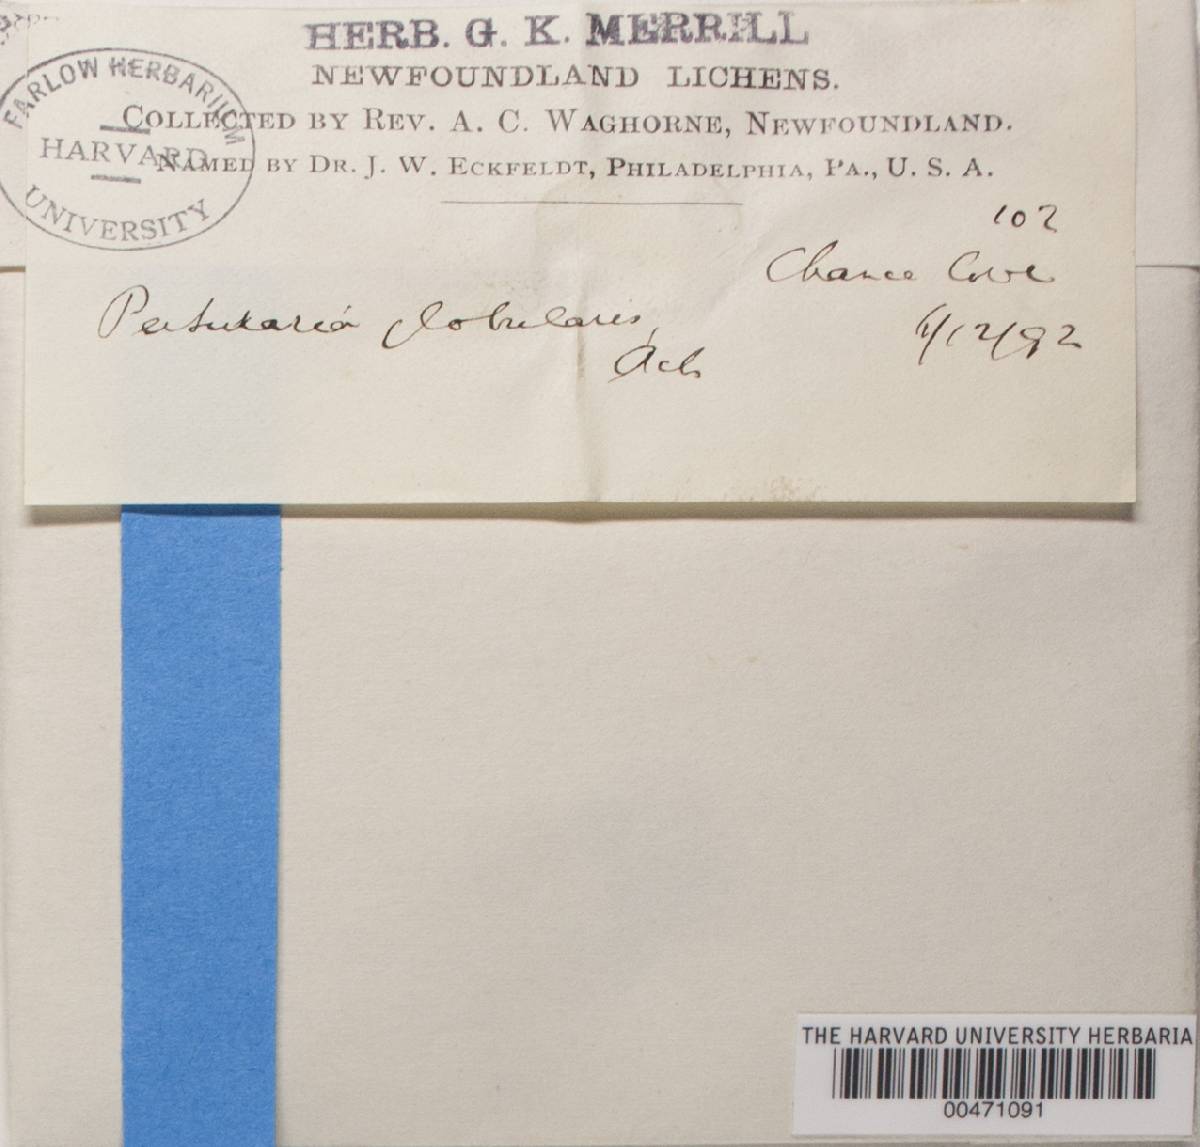 HERB. G. K. MERRILL
NEWFOUNDLAND LICHENS.
COLLECTED BY REV. A. C. WAGHORNE, NEWFOUNDLAND.
NAMED BY DR. J. W. ECKFELDT, PHILADELPHIA, PA., U. S. A.
FARLOW HERBARIUM
HARVARD
UNIVERSITY
102
Chance Cove
Pertusaria globularis,
Ach
/12/92
THE HARVARD UNIVERSITY HERBARIA
00471091